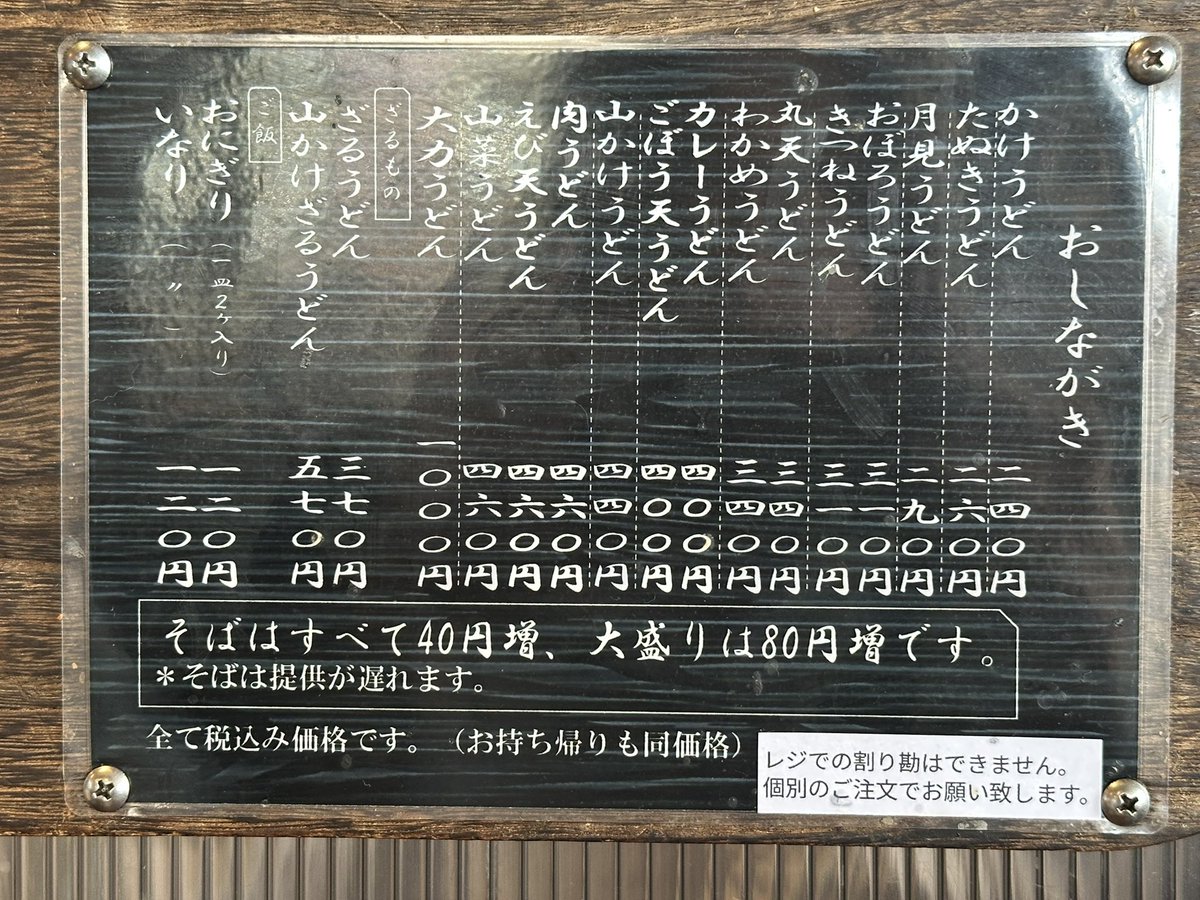 おしながき
かけうどん 二四〇円
たぬきうどん 二六〇円
月見うどん 二九〇円
おぼろうどん 三一〇円
きつねうどん 三一〇円
丸天うどん 三四〇円
わかめうどん 三四〇円
カレーうどん 四〇〇円
ごぼう天うどん 四〇〇円
山かけうどん 四四〇円
肉うどん 四六〇円
えび天うどん 四六〇円
山菜うどん 四六〇円
大力うどん 一〇〇〇円
ざるもの
ざるうどん 三七〇円
山かけざるうどん 五七〇円
ご飯
おにぎり（一皿2ヶ入り） 一二〇円
いなり（ 〃 ） 一二〇円
そばはすべて40円増、大盛りは80円増です。
＊そばは提供が遅れます。
全て税込み価格です。（お持ち帰りも同価格）
レジでの割り勘はできません。
個別のご注文でお願い致します。